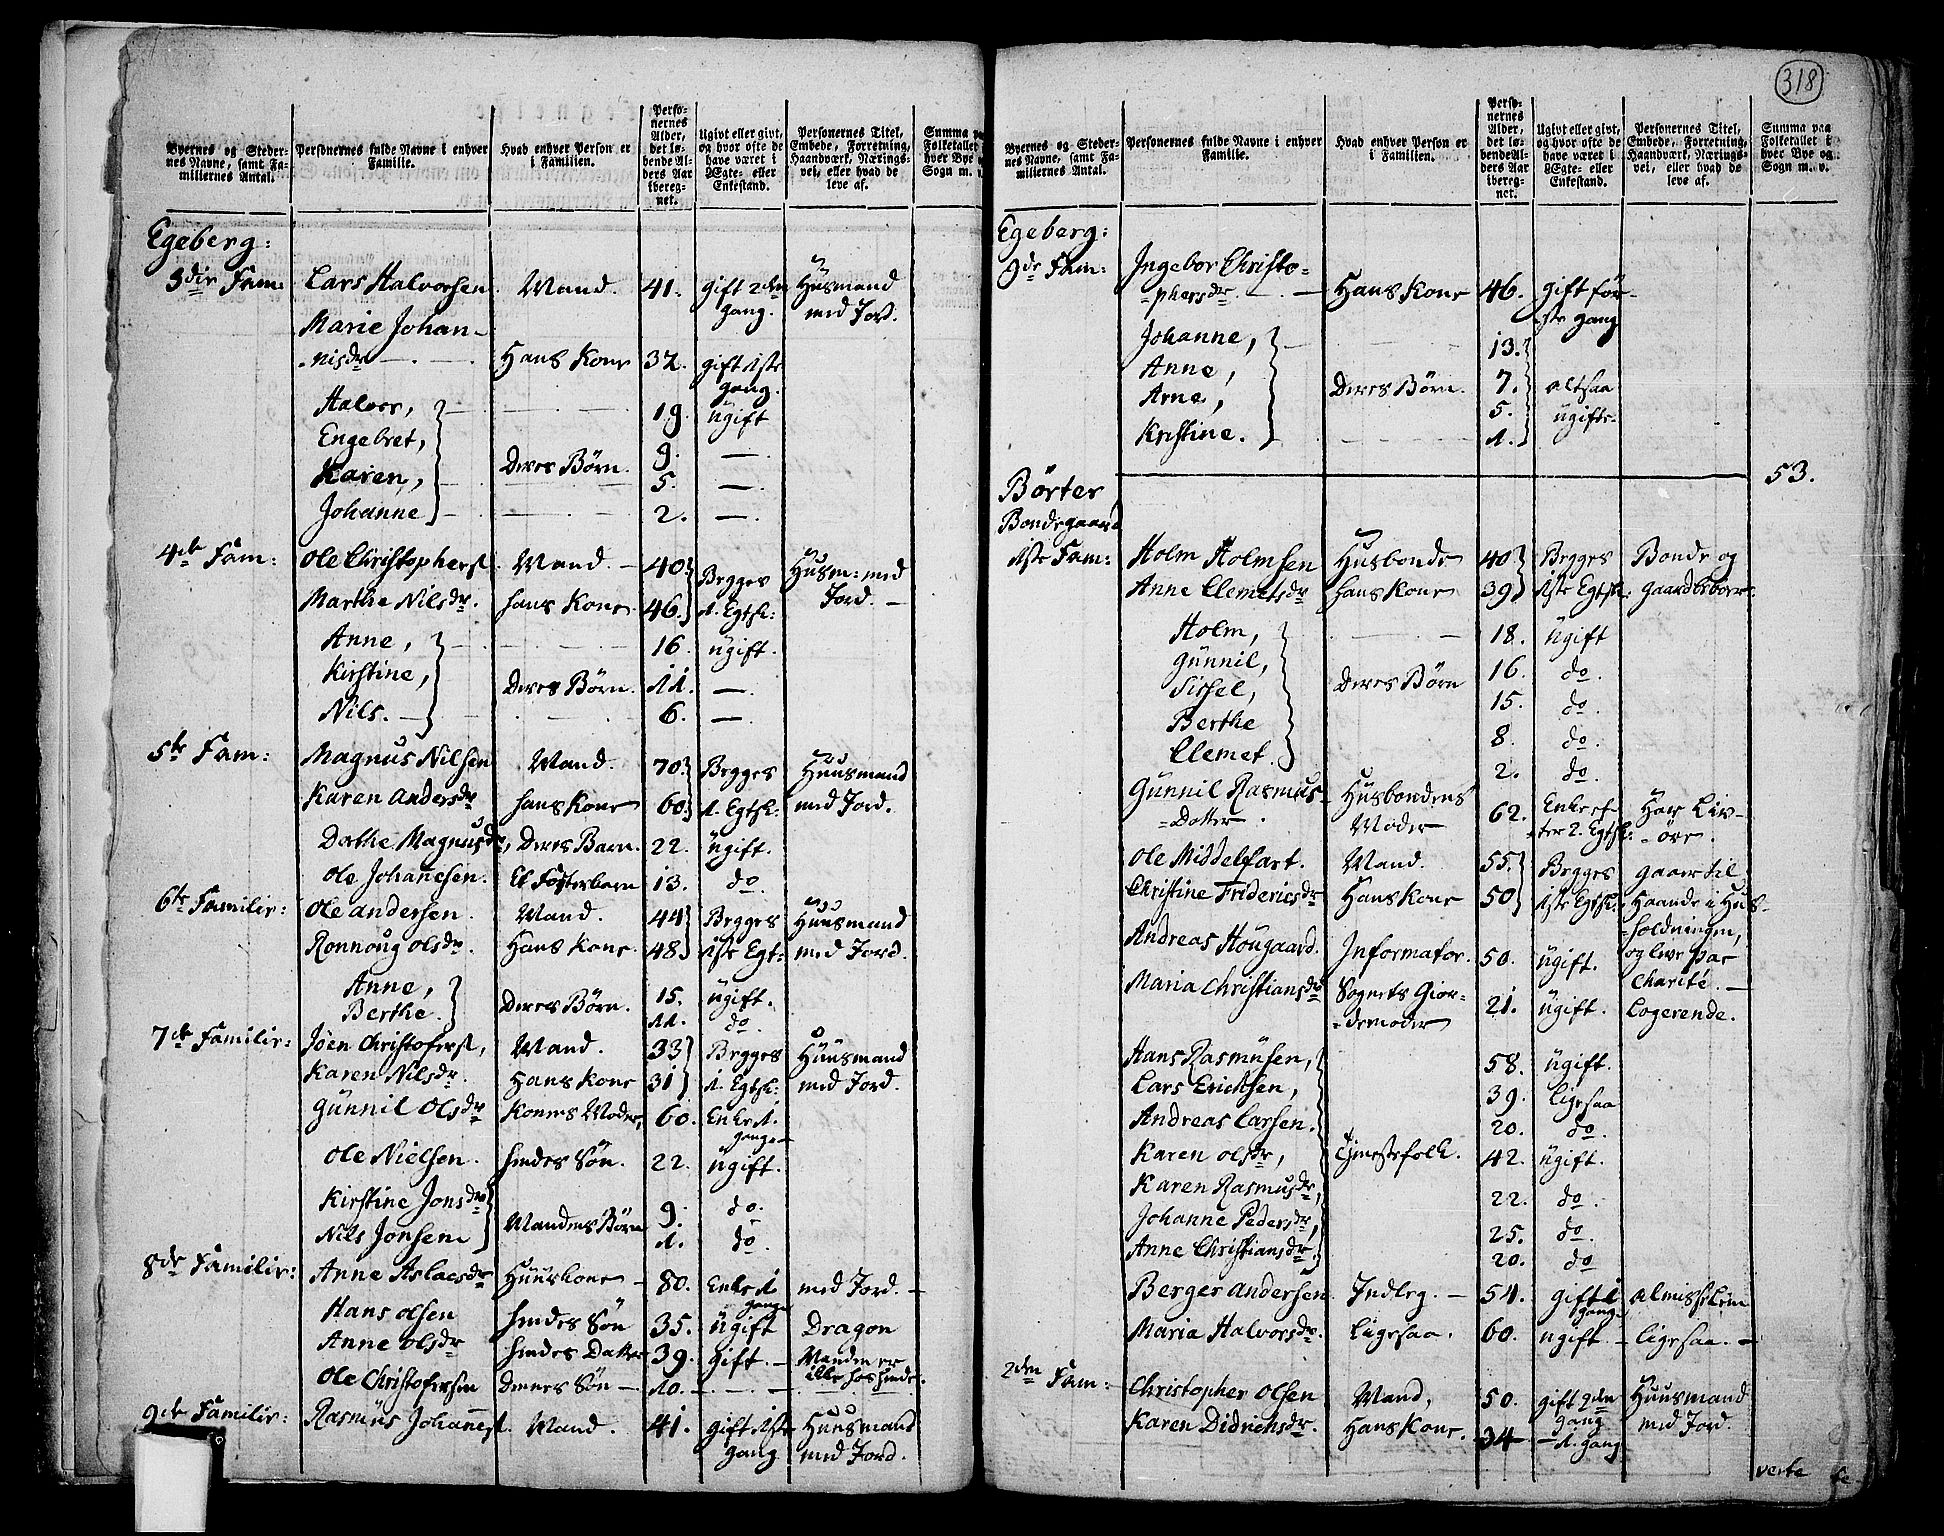 Byernes og Steder-
nes Navne, samt Fa-
miliernes Antal.
Personernes fulde Navne i enhver
Familie.
Hvad enhver Person er
i Familien.
Perso-
nernes
Alder,
det lø-
bende Al-
ders Aar
ibereg-
net.
Ugivt eller givt,
og hvor ofte de
have været i
Egte- eller
Enkestand.
Personernes Titel,
Embede, Forretning,
Haandværk, Nærings-
vei, eller hvad de
leve af.
Summa paa
Folketallet i
hver Bye og
Sogn m. v.
Egeberg:
3die Fam: Lars Halvorsen Mand. 41. gift 2den Huusmand
gang. med Jord.
Marie Johan-
nisdr Hans Kone 32. gift 1ste
gang.
Halvor, 19. ugift
Engebret, 9. —
Karen, Deres Børn. 5. —
Johanne 2. —
4de Fam: Ole Christophers. Mand. 40 Begges Huusm: med
Marthe Nilsdr. Hans Kone 46. 1. Egtsk: Jord.
Anne, 16. ugift.
Kirstine, Deres Børn. 11. —
Nils. 6. —
5te Fam: Magnus Nilsen Mand. 70. Begges Huusmand
Karen Andersdr Hans Kone 60. 1. Egtsk: med Jord.
Dorthe Magnusdr, Deres Barn. 22. ugift.
Ole Johanesen. Et Fosterbarn 13. do.
6te Familie: Ole Andersen. Mand. 44 Begges Huusmand
Ronnoug Olsdr. Hans Kone. 48 1ste Egt: med Jord.
Anne, 15. ugift.
Berthe. Deres Børn. 11. do.
7de Familie: Joen Christofers., Mand. 33 Begges Huusmand
Karen Nilsdr. Hans Kone 31 1. Egtsk: med Jord.
Gunnil Olsdr Konens Moder, 60. Enke 1.
gang
Ole Nielsen. Hendes Søn. 22. ugift.
Kirstine Jonsdr 9. do.
Nils Jonsen Mandens Børn 1. do.
8de Familie: Anne Aslaesdr Huuskone 80. Enke 1 med Jord.
gang
Hans Olsen Hendes Søn 35. ugift Dragon
Anne Olsdr Hendes Datter 39. gift. Manden er
ikke hos hende.
Ole Christofersen Dennes Søn 10.
9de Familie: Rasmus Johannes. Mand. 41. gift 1ste Huusmand
gang med Jord.
318
Byernes og Steder-
nes Navne, samt Fa-
miliernes Antal.
Personernes fulde Navne i enhver
Familie.
Hvad enhver Person er
i Familien.
Perso-
nernes
Alder,
det lø-
bende Al-
ders Aar
ibereg-
net.
Ugivt eller givt,
og hvor ofte de
have været i
Egte- eller
Enkestand.
Personernes Titel,
Embede, Forretning,
Haandværk, Nærings-
vei, eller hvad de
leve af.
Summa paa
Folketallet i
hver Bye og
Sogn m. v.
Egeberg:
9de Fam: Ingebor Christo-
phersdr. Hans Kone 46. gift før-
ste gang
Johanne, 13.
Anne, 7. altsaa
Arne, Deres Børn. 5. ugifte.
Kristine. 1.
53.
Børter
Bondegaard
1ste Fam: Holm Holmsen Husbonde 40 Begges Bonde og
Anne Clemetsdr Hans Kone 39 1ste Egtsk: Gaardbeboer.
Holm, 18. ugift
Gunnil, 16. do.
Sissel, Deres Børn 15. do.
Berthe 8. do.
Clemet. 2. do.
Gunnil Rasmus- Husbondens 62. Enke ef- Har Liv-
Datter. Moder ter 2. Egtsk: øre.
Ole Middelfart. Mand. 55. Begges gaaer til
Christine Fridericsdr Hans Kone 50 1ste Egtsk. Haande i Hus-
holdningen,
Andreas Hougaard. Informator. 50. ugift. og leve par
Charité.
Maria Christiansdr Sognets Gior- 21. ugift. Logerende.
demoder
Hans Rasmusen, 58. ugift.
Lars Ericksen, 39. ligesaa
Andreas Larsen. 20. do.
Karen Olsdr, Tjenestefolk. 42. ugift.
Karen Rasmusdr, 22. do.
Johanne Pedersdr, 25. do.
Anne Christiansdr. 20. do
Berger Andersen Indleg. 54. gift 1 Almisselem
gang
Maria Halvorsdr. Ligesaa. 60. ugift ligesaa.
2den Fam: Christopher Olsen Mand, 50. gift 2den Huusmand
gang
Karen Didrichsdr. Hans Kone. 34 1. gang med Jord.
verte